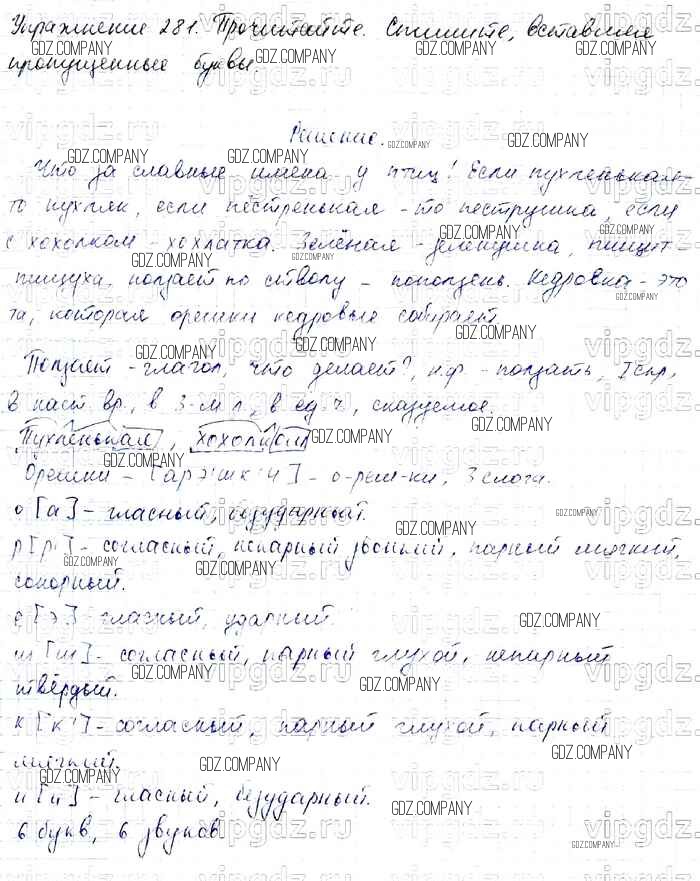 Упражнение 281. Прочитайте. Спишите, вставляя
пропущенные буквы.
Решение.
Что за славные имена у птиц! Если пухленькая-
то пухляк, если пёстренькая - то пеструшка, если
с хохолком - хохлатка. Зелёная - зеленушка, пищит -
пищуха, ползает по стволу - поползень. Кедровка - это
та, которая орешки кедровые собирает.
Ползает - глагол, что делает?, н.ф - ползать, I спр,
в наст вр, в 3-м л, в ед. ч, сказуемое.
Пухленькая, хохолком
Орешки - [арэшк'и] - о-реш-ки, 3 слога.
о [а] - гласный, безударный.
р [р'] - согласный, непарный звонкий, парный мягкий,
сонорный.
е [э] - гласный, ударный.
ш [ш] - согласный, парный глухой, непарный
твёрдый.
к [к'] - согласный, парный глухой, парный
мягкий.
и [и] - гласный, безударный.
6 букв, 6 звуков